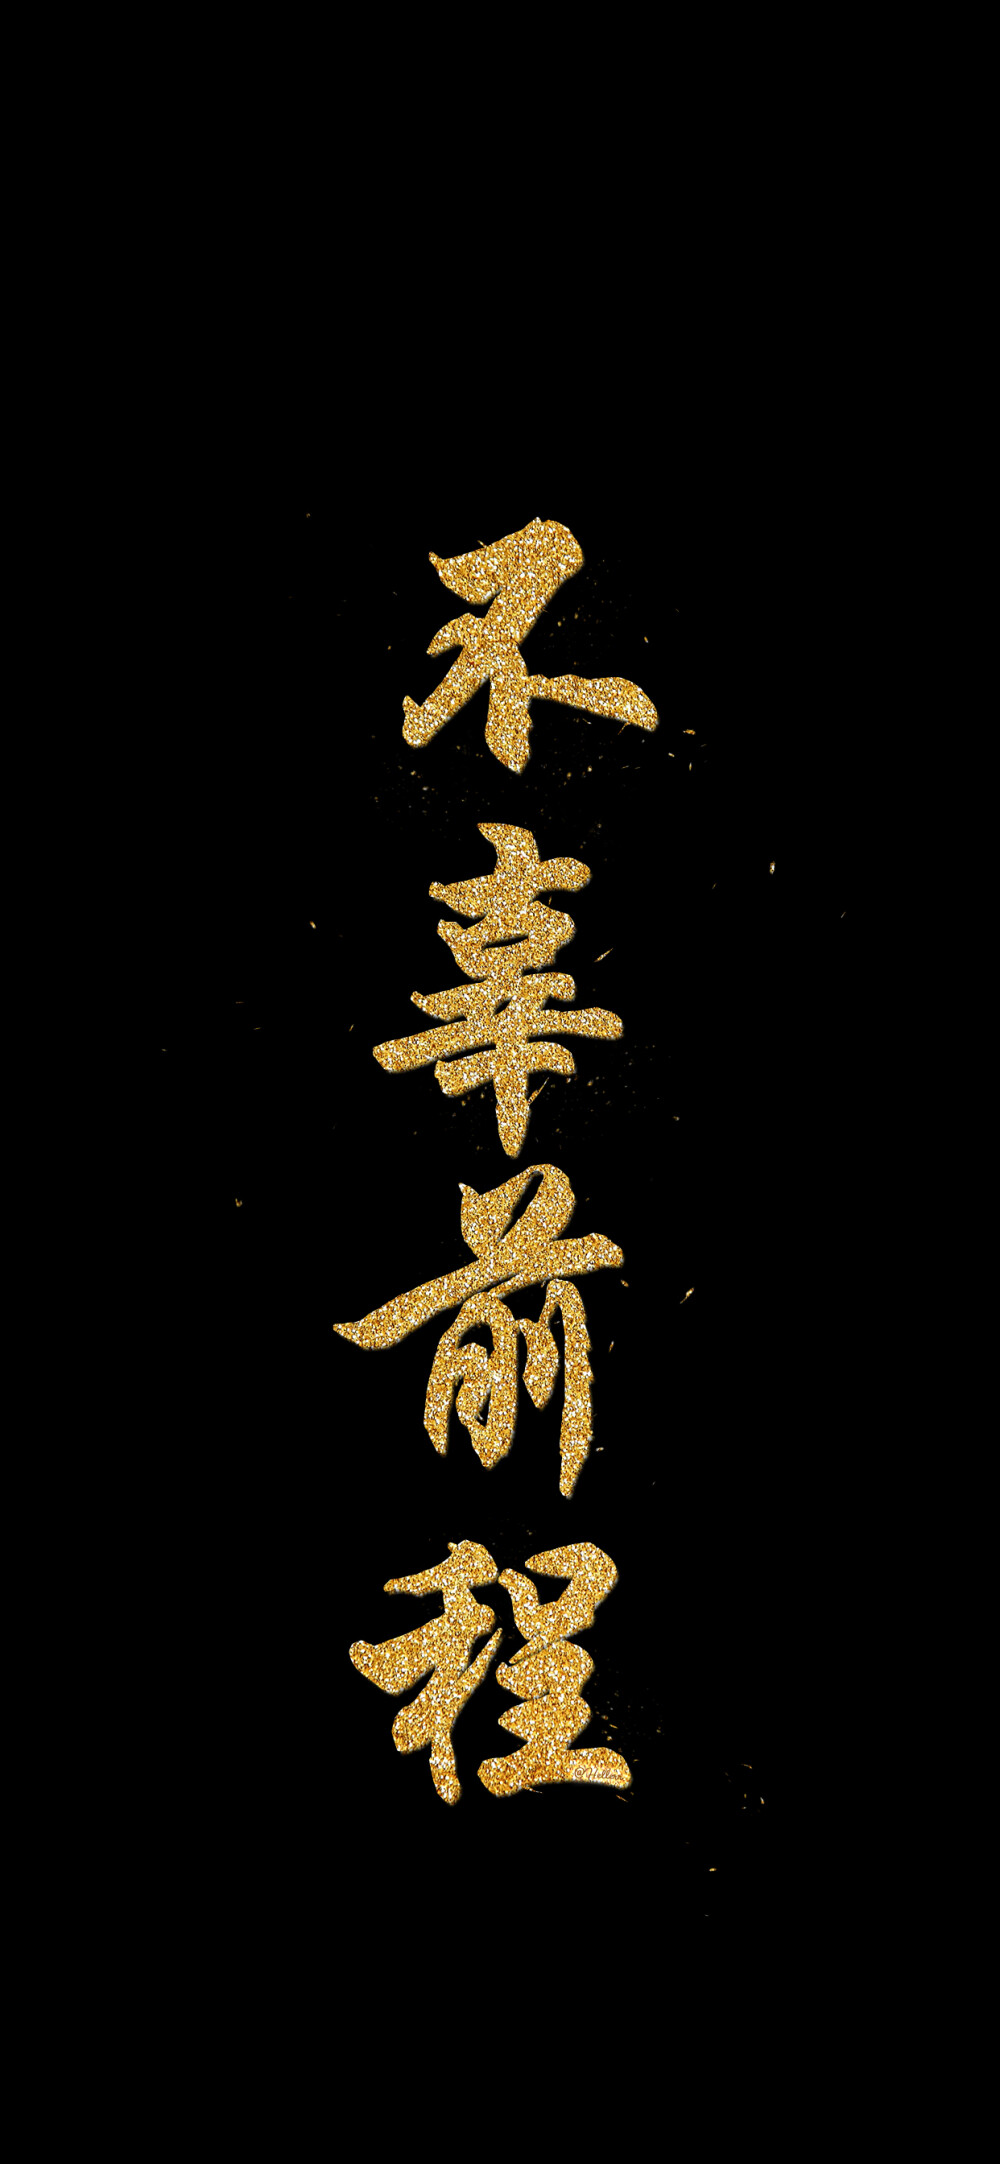 不辜前程
@Hellern